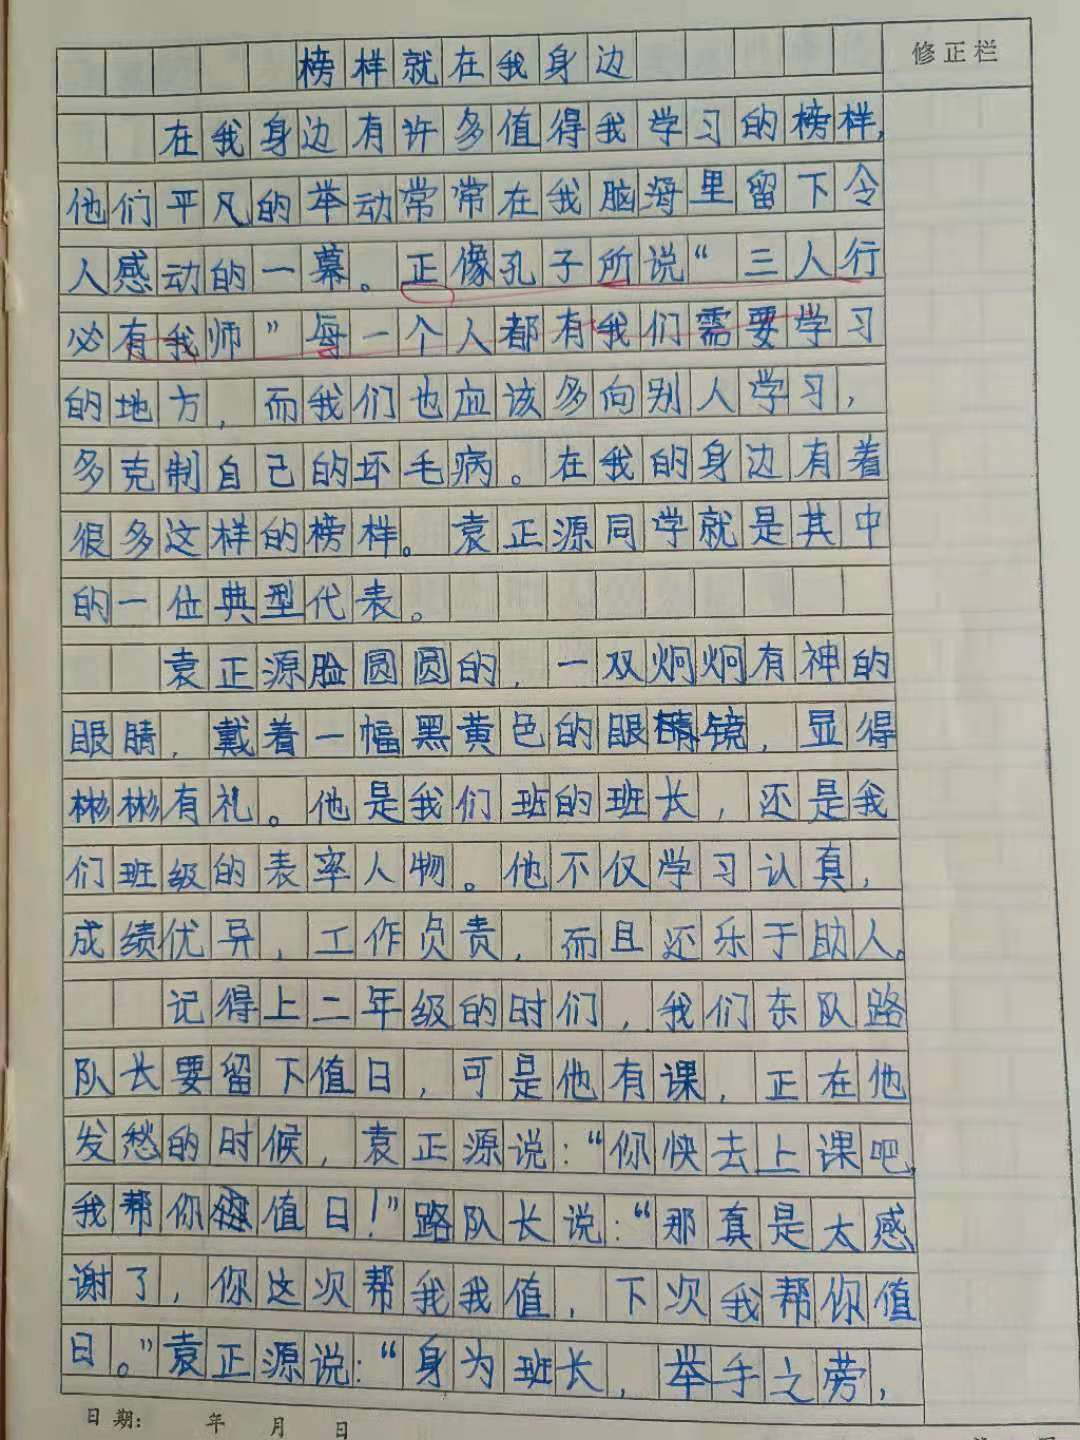 榜样就在我身边
修正栏
在我身边有许多值得我学习的榜样,
他们平凡的举动常常在我脑海里留下令
人感动的一幕。正像孔子所说“三人行
必有我师”每一个人都有我们需要学习
的地方,而我们也应该多向别人学习,
多克制自己的坏毛病。在我的身边有着
很多这样的榜样。袁正源同学就是其中
的一位典型代表。
袁正源脸圆圆的,一双炯炯有神的
眼睛,戴着一幅黑黄色的眼镜,显得
彬彬有礼。他是我们班的班长,还是我
们班级的表率人物。他不仅学习认真,
成绩优异,工作负责,而且还乐于助人。
记得上二年级的时们,我们东队路
队长要留下值日,可是他有课,正在他
发愁的时候,袁正源说:“你快去上课吧,
我帮你值日!”路队长说:“那真是太感
谢了,你这次帮我我值,下次我帮你值
日。”袁正源说:“身为班长,举手之劳,
日期: 年 月 日